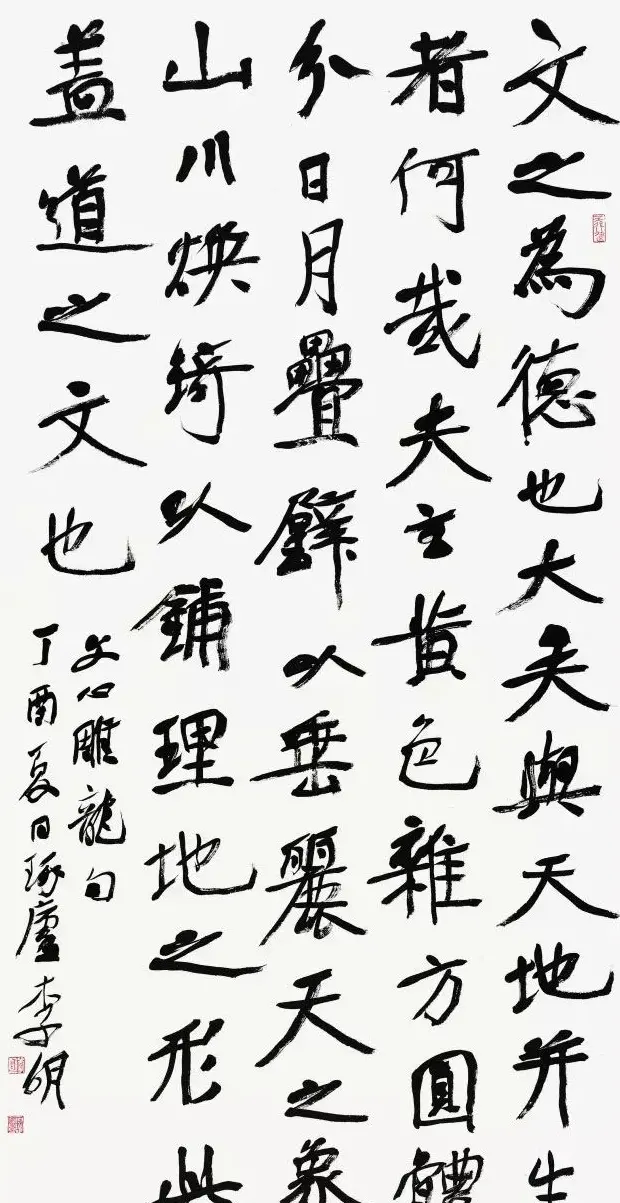 文之為德也大矣與天地并生
者何哉夫玄黃色雜方圓體
分日月疊璧以垂麗天之象
山川煥綺以鋪理地之形此
蓋道之文也
文心雕龍句
丁酉夏日琢廬李明